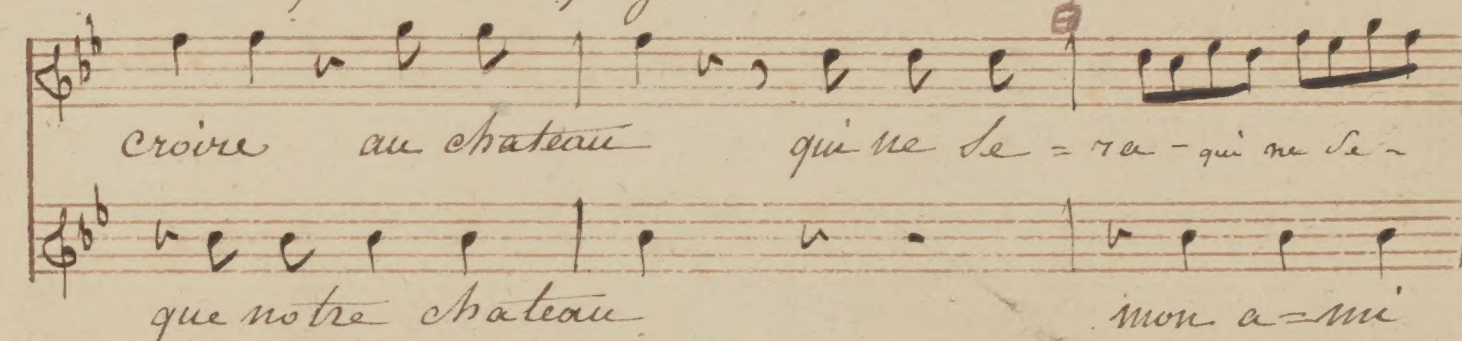 croire au chateau qui ne se = ra - qui ne se -
que notre chateau mon a = mi